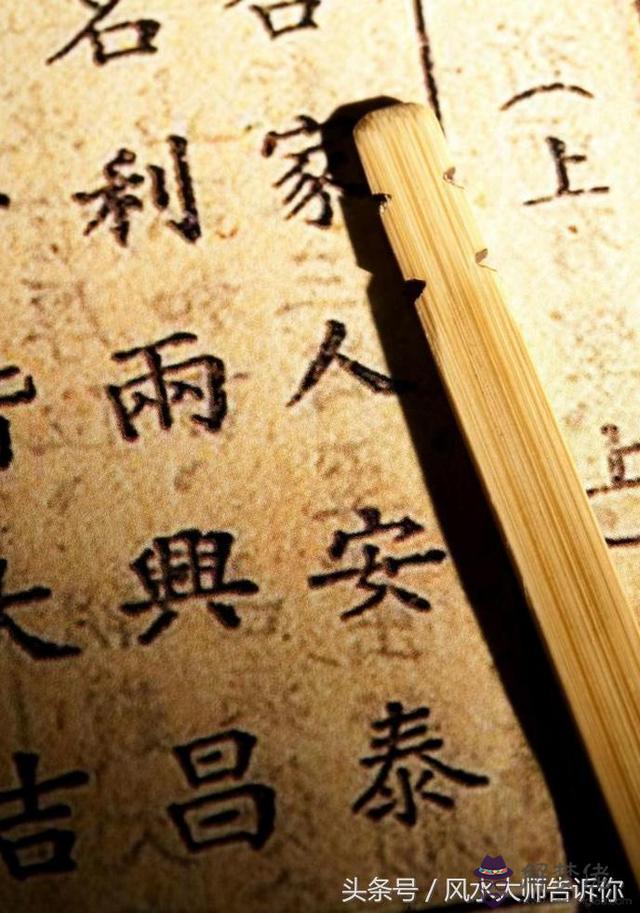 （上
上
家人安泰
名利兩興昌
吉
头条号 / 风水大师告诉你